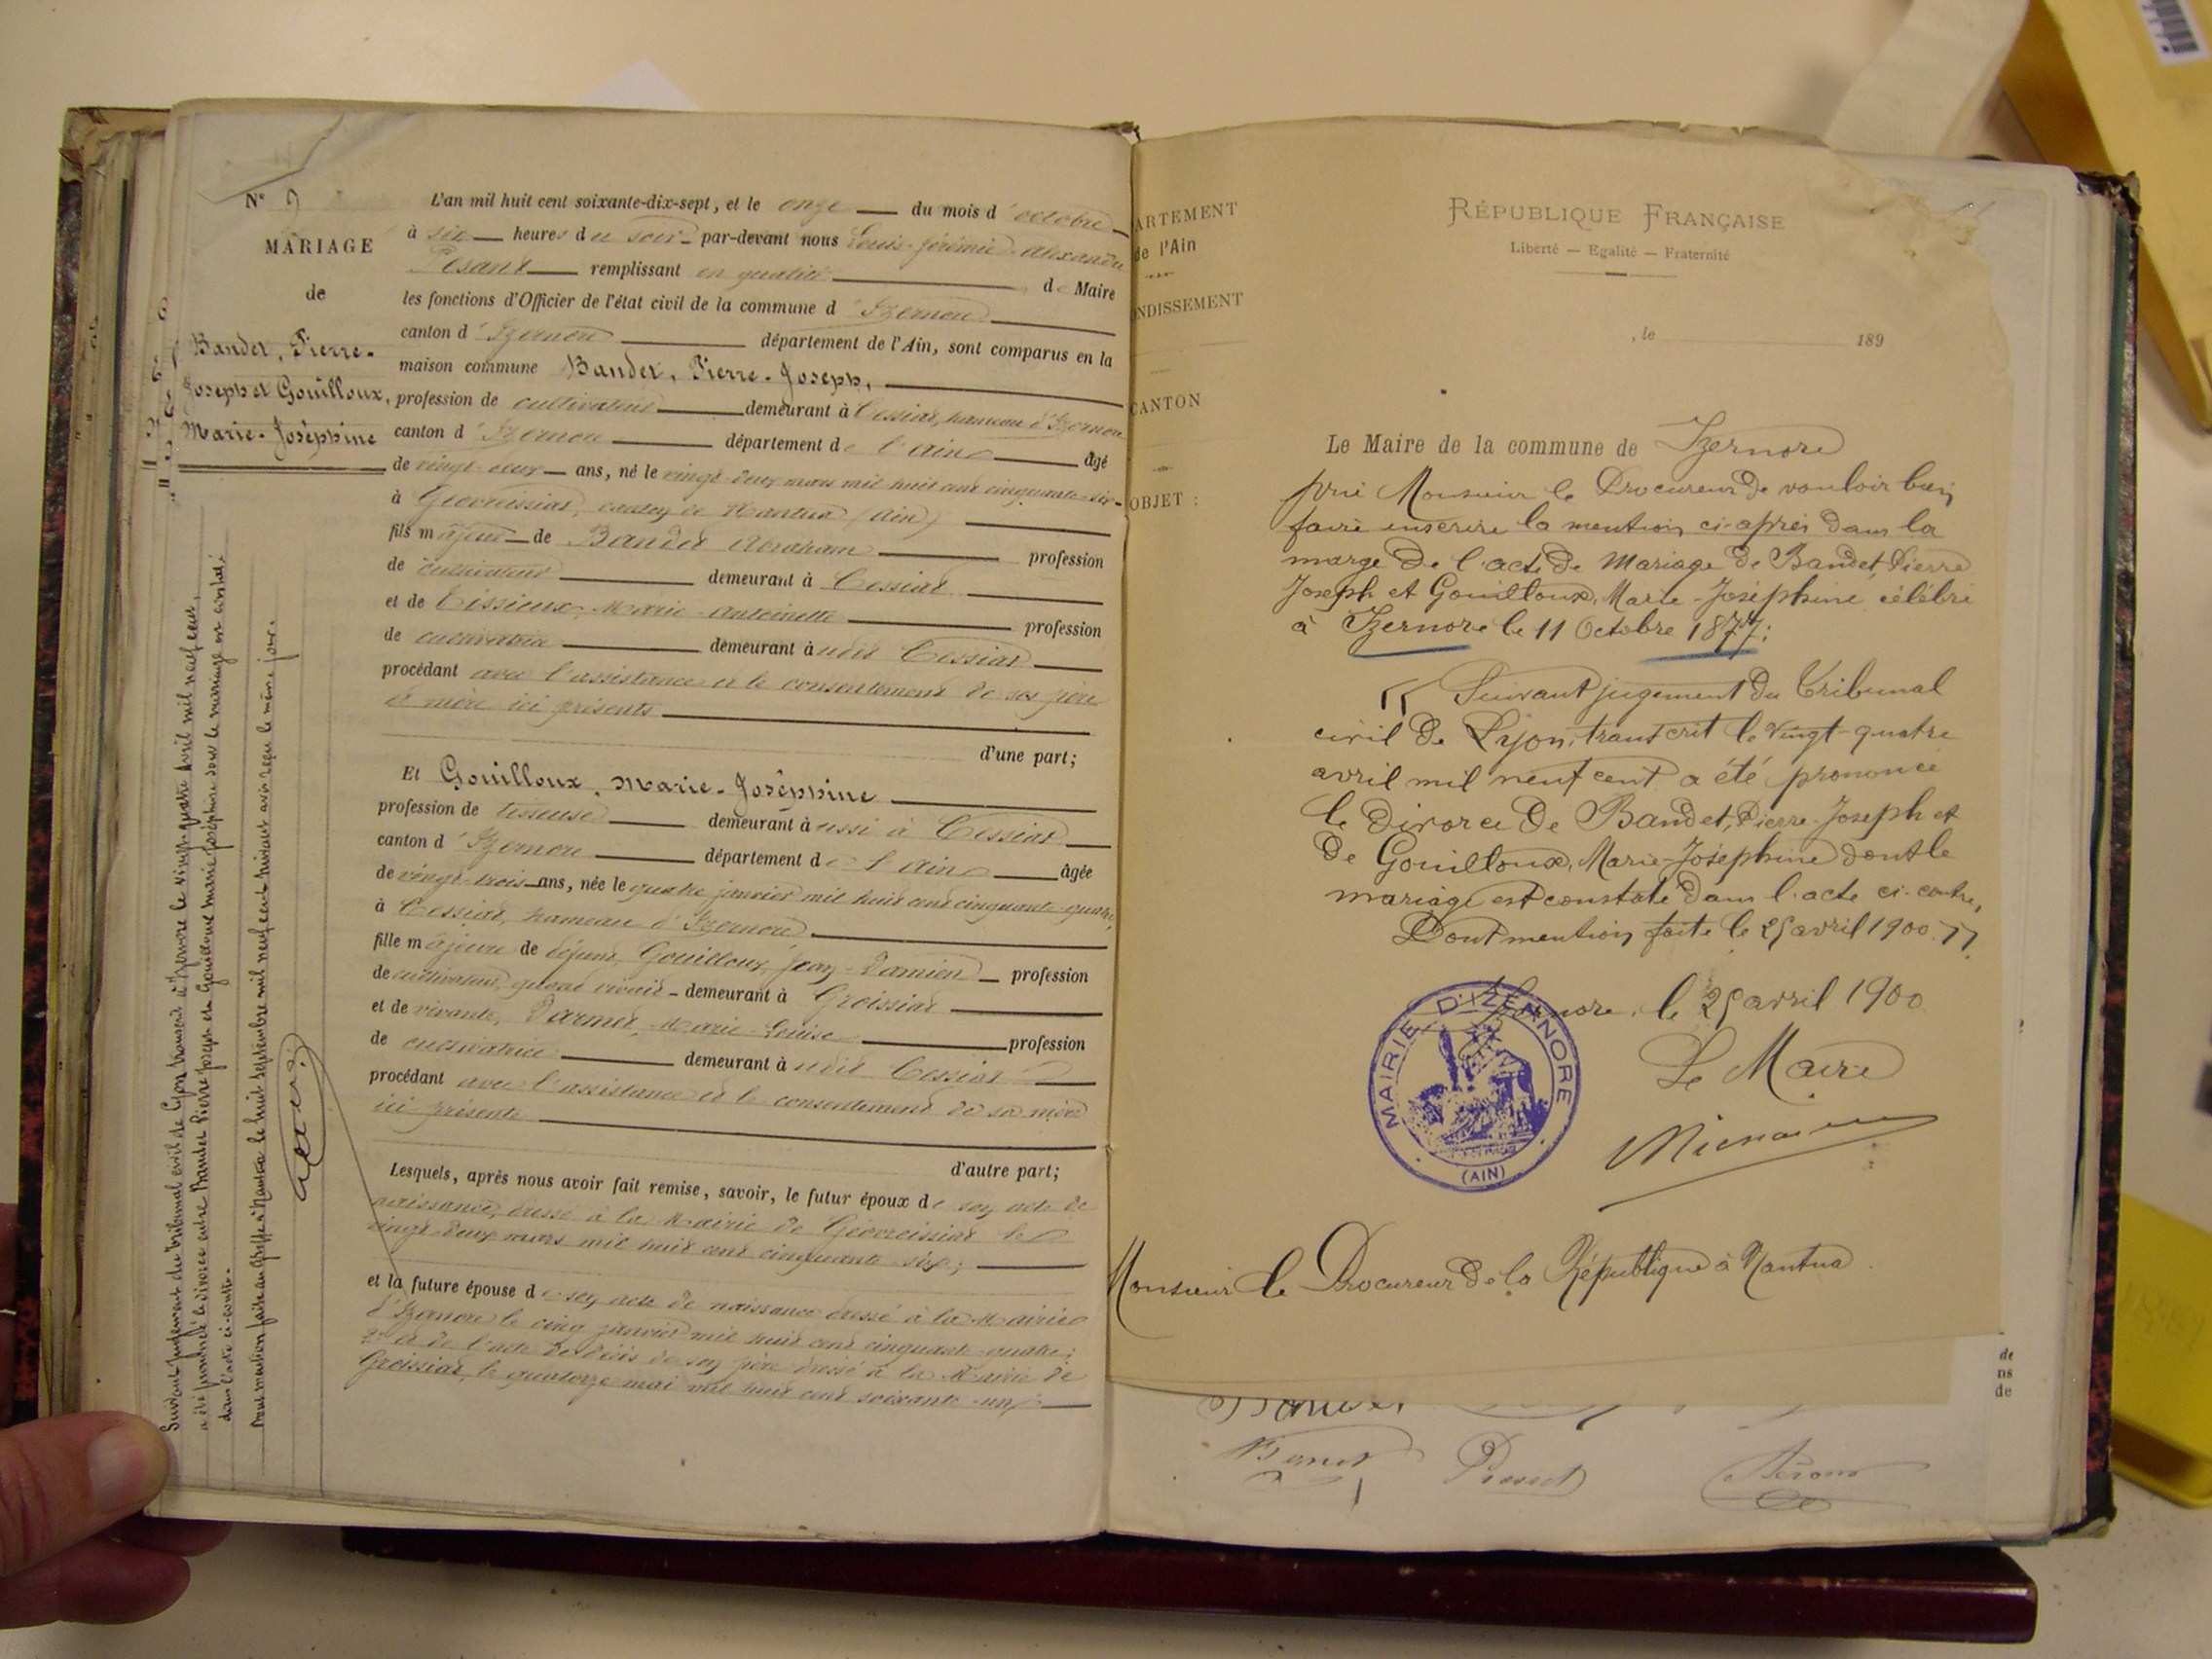 N° 9
MARIAGE
de
Bandet, Pierre-
Joseph et Gouilloux,
Marie-Joséphine
Suivant jugement du tribunal civil de Lyon transcrit à Izernore le vingt-quatre avril mil neuf cent,
a été prononcé le divorce entre Bandet Pierre Joseph et Gouilloux marie Joséphine dont le mariage est constaté
dans l'acte ci-contre.
Dont mention faite au Greffe à Nantua le huit septembre mil neuf cent suivant avis reçu le même jour.
L'an mil huit cent soixante-dix-sept, et le onze du mois d'octobre
à six heures du soir par-devant nous Louis-Jérémie-Alexandre
Pesant remplissant en qualité de Maire
les fonctions d'Officier de l'état civil de la commune d'Izernore
canton d'Izernore département de l'Ain, sont comparus en la
maison commune Bandet, Pierre-Joseph,
profession de cultivateur demeurant à Cessiat, hameau d'Izernore
canton d'Izernore département de l'Ain âgé
de vingt-deux ans, né le vingt-deux mars mil huit cent cinquante-six
à Géovreissiat, canton de Nantua (Ain)
fils majeur de Bandet Abraham profession
de cultivateur demeurant à Cessiat
et de Tissieux, Marie-Antoinette profession
de cultivatrice demeurant à udit Cessiat
procédant avec l'assistance et le consentement de ses père
et mère ici présents
d'une part;
Et Gouilloux, Marie-Joséphine
profession de tisseuse demeurant aussi à Cessiat
canton d'Izernore département de l'Ain âgée
de vingt-trois ans, née le quatre janvier mil huit cent cinquante-quatre
à Cessiat, hameau d'Izernore
fille majeure de défunt Gouilloux, Jean-Damien profession
de cultivateur, quand vivait demeurant à Groissiat
et de vivante, Darmet, Marie-Louise profession
de cultivatrice demeurant à udit Cessiat
procédant avec l'assistance et le consentement de sa mère
ici présente
d'autre part;
Lesquels, après nous avoir fait remise, savoir, le futur époux de son acte de
naissance, dressé à la Mairie de Géovreissiat le
vingt-deux mars mil huit cent cinquante-six;
et la future épouse de son acte de naissance dressé à la Mairie
d'Izernore le cinq janvier mil huit cent cinquante-quatre;
2° et de l'acte de décès de son père dressé à la Mairie de
Groissiat, le quatorze mai mil huit cent soixante-un;
ARTEMENT
de l'Ain
NDISSEMENT
CANTON
OBJET :
RÉPUBLIQUE FRANÇAISE
Liberté — Egalité — Fraternité
, le 189
Le Maire de la commune de Izernore
prie Monsieur le Procureur de vouloir bien
faire inscrire la mention ci-après dans la
marge de l'acte de Mariage de Bandet, Pierre
Joseph et Gouilloux, Marie-Joséphine célébré
à Izernore le 11 Octobre 1877:
"Suivant jugement du Tribunal
civil de Lyon, transcrit le vingt-quatre
avril mil neuf cent a été prononcé
le divorce de Bandet, Pierre-Joseph et
de Gouilloux, Marie-Joséphine dont le
mariage est constaté dans l'acte ci-contre,
Dont mention faite le 25 avril 1900."
Izernore, le 25 avril 1900
Le Maire
MAIRIE D'IZERNORE
(AIN)
Monsieur le Procureur de la République à Nantua
de
ns
de